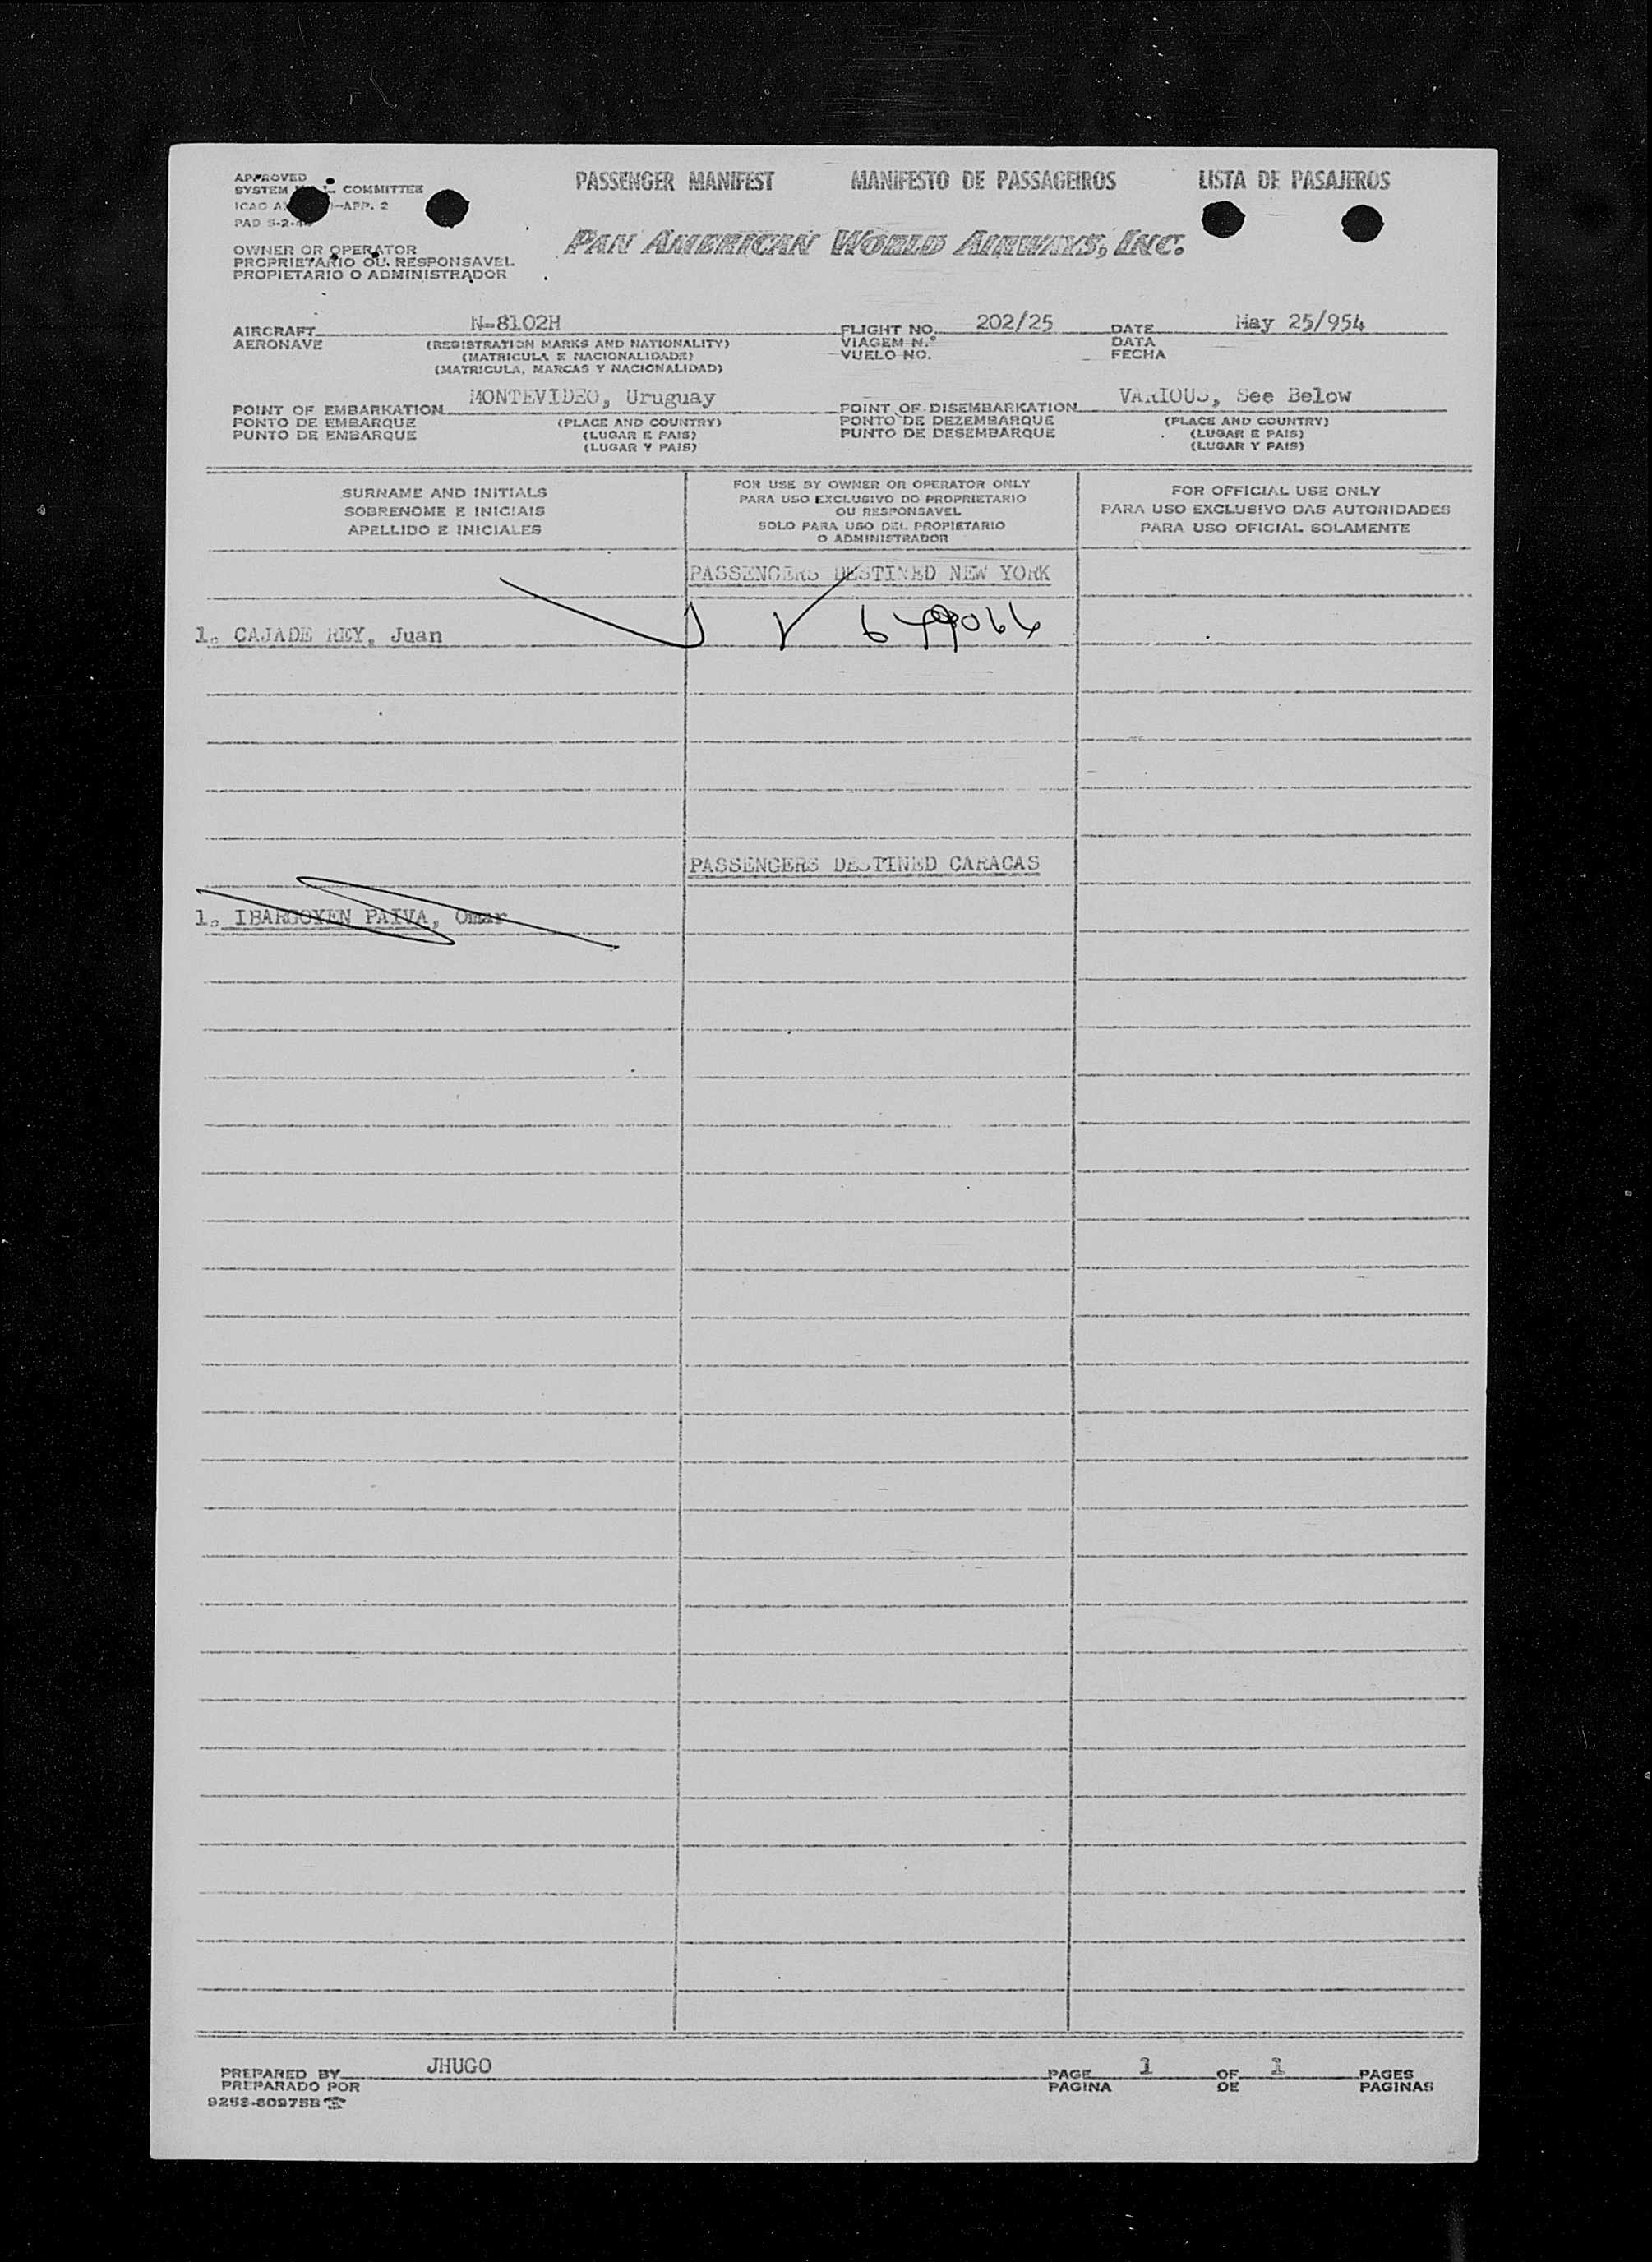 APPROVED
SYSTEM COMMITTEE
ICAO -APP. 2
PAD
PASSENGER MANIFEST MANIFESTO DE PASSAGEIROS LISTA DE PASAJEROS
PAN AMERICAN WORLD AIRWAYS, INC.
OWNER OR OPERATOR
PROPRIETARIO OU RESPONSAVEL
PROPIETARIO O ADMINISTRADOR
AIRCRAFT N-8102H FLIGHT NO. 202/25 DATE May 25/954
AERONAVE (REGISTRATION MARKS AND NATIONALITY) VIAGEM N.º DATA
(MATRICULA E NACIONALIDADE) VUELO NO. FECHA
(MATRICULA, MARCAS Y NACIONALIDAD)
POINT OF EMBARKATION MONTEVIDEO, Uruguay POINT OF DISEMBARKATION VARIOUS, See Below
PONTO DE EMBARQUE (PLACE AND COUNTRY) PONTO DE DEZEMBARQUE (PLACE AND COUNTRY)
PUNTO DE EMBARQUE (LUGAR E PAIS) PUNTO DE DESEMBARQUE (LUGAR E PAIS)
(LUGAR Y PAIS) (LUGAR Y PAIS)
SURNAME AND INITIALS
SOBRENOME E INICIAIS
APELLIDO E INICIALES
FOR USE BY OWNER OR OPERATOR ONLY
PARA USO EXCLUSIVO DO PROPRIETARIO
OU RESPONSAVEL
SOLO PARA USO DEL PROPIETARIO
O ADMINISTRADOR
FOR OFFICIAL USE ONLY
PARA USO EXCLUSIVO DAS AUTORIDADES
PARA USO OFICIAL SOLAMENTE
PASSENGERS DESTINED NEW YORK
1. CAJADE REY, Juan
PASSENGERS DESTINED CARACAS
1. IBARGOYEN PAIVA, Omar
PREPARED BY JHUGO PAGE 1 OF 1 PAGES
PREPARADO POR PAGINA DE PAGINAS